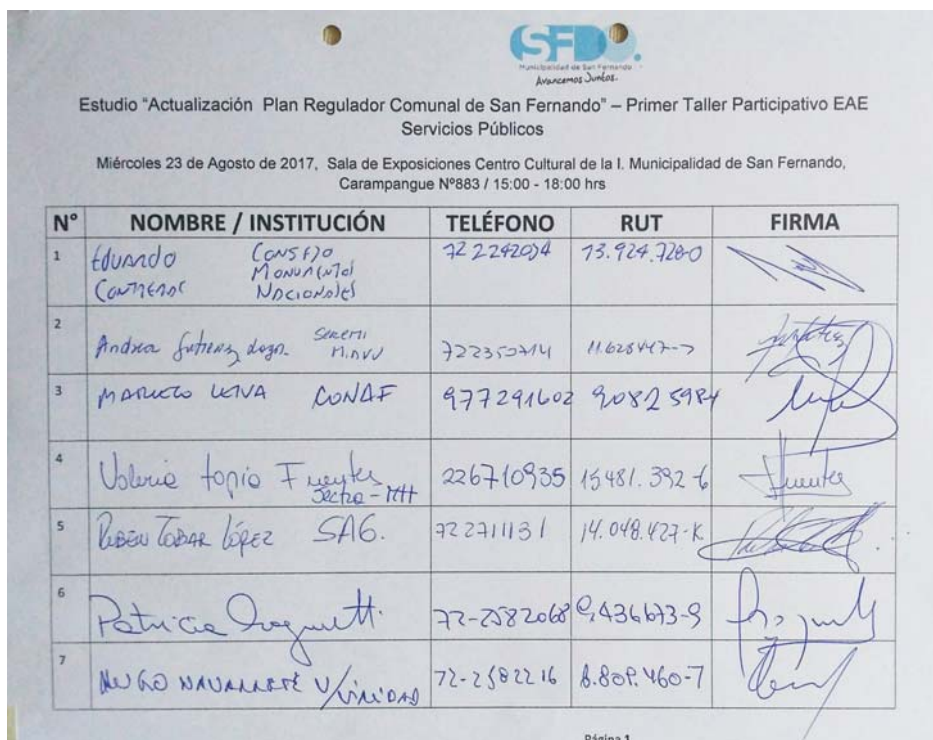 SFDO.
Municipalidad de San Fernando
Avancemos Juntos.
Estudio “Actualización Plan Regulador Comunal de San Fernando” – Primer Taller Participativo EAE
Servicios Públicos
Miércoles 23 de Agosto de 2017, Sala de Exposiciones Centro Cultural de la I. Municipalidad de San Fernando,
Carampangue Nº883 / 15:00 - 18:00 hrs
N° NOMBRE / INSTITUCIÓN TELÉFONO RUT FIRMA
1 Eduardo Consejo Monumentos Nacionales 13.924.728-0
2 Andrea Seremi Minvu 722350714 11.628447-7
3 MARCELO LEIVA CONAF 977291602 90825984
4 Valeria tapia Fuentes Sectra - 226710935 15481.392-6 Fuentes
5 RUBÉN TOBAR LÓPEZ SAG. 722711131 14.048.427-K
6 Patricia 72-2582068 9,436673-9
7 HUGO NAVARRETE 72-2582216 8.809.460-7
Página 1